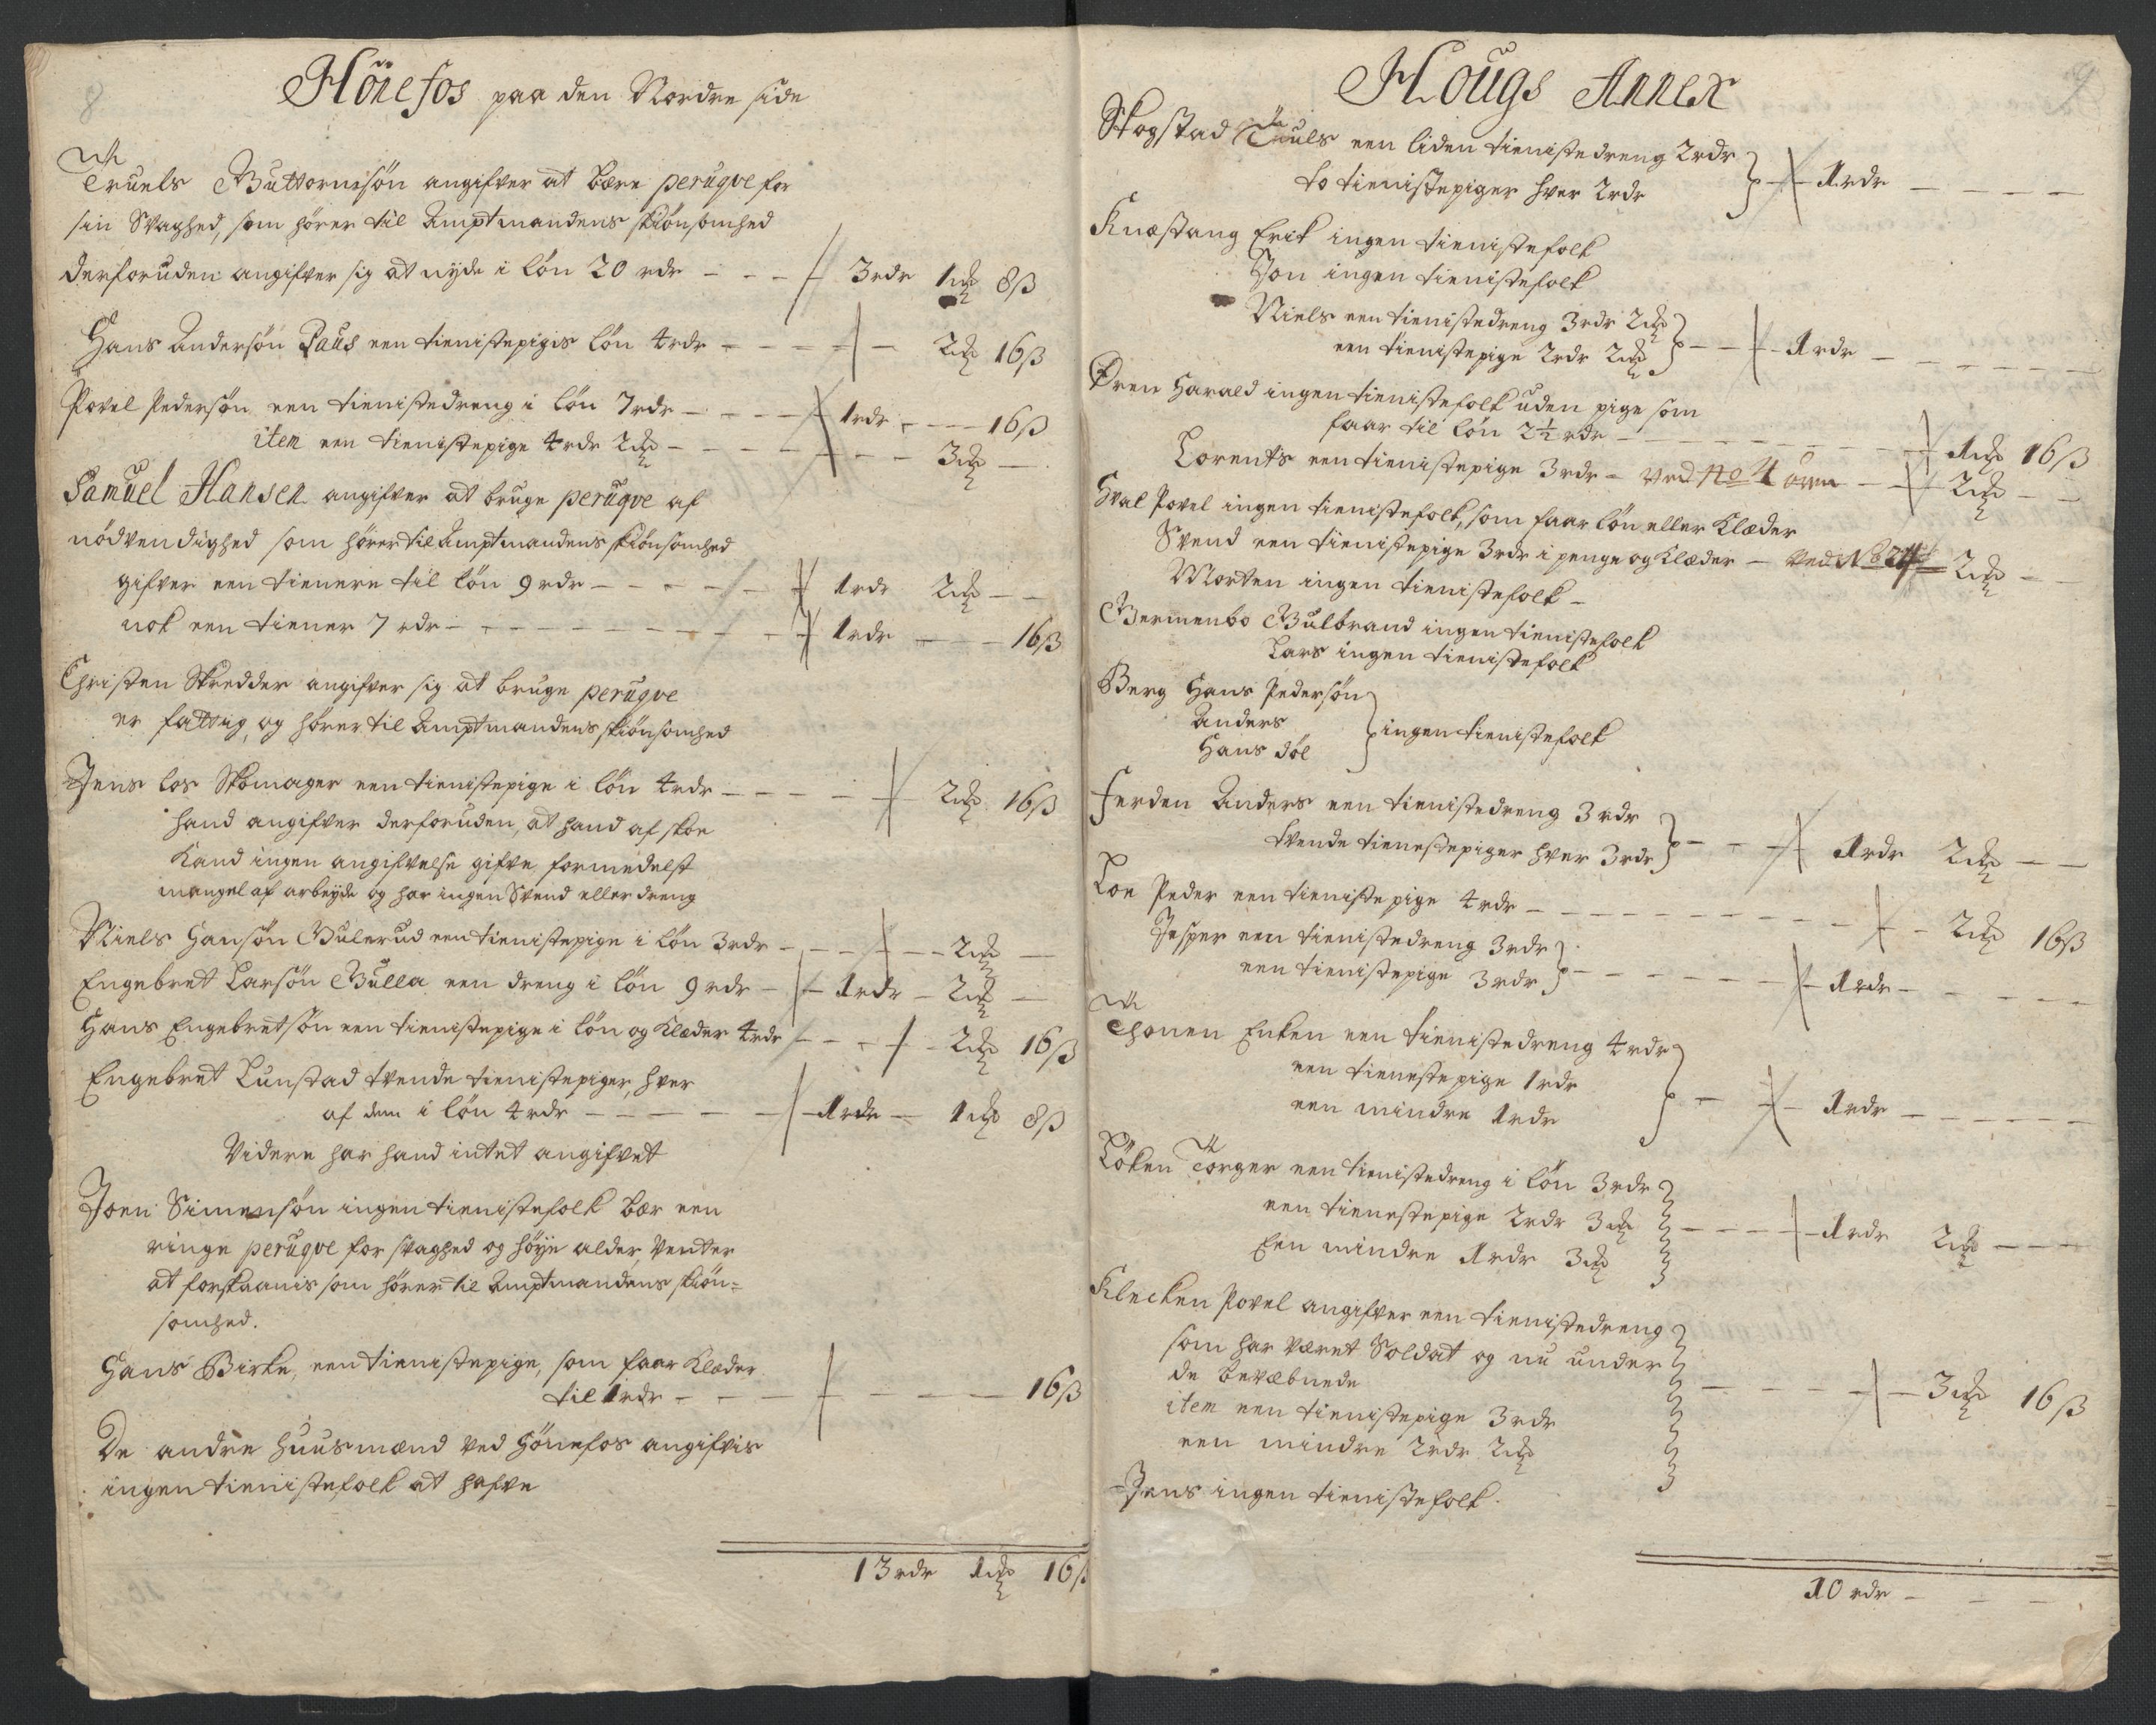 8
Hönefos paa den Nordre side
Truels Guttormsøn angifver at bære peruqve for
sin Svaghed, som hører til Amptmandens skiønsomhed
derforuden angifver sig at nyde i løn 20 rdr - - - 3 rdr 1 ↄ 8 ß
Hans Andersøn Paus een tienistepigis løn 4 rdr - - - - 2 ↄ 16 ß
Povel Pedersøn een tienistedreng i løn 7 rdr - - - - 1 rdr - - - 16 ß
item een tienistepige 4 rdr 2 ↄ - - - - - - 3 ↄ -
Samuel Hansen angifver at bruge peruqve af
nödvendighed som hører til Amptmandens skiønsomhed
gifver een tienere til løn 9 rdr - - - - - - 1 rdr 2 ↄ - -
nok een tiener 7 rdr - - - - - - - - 1 rdr - - - 16 ß
Christen Skredder angifver sig at bruge peruqve
er fattig, og hører til Amptmandens skiønsomhed
Jens los Skomager een tienistepige i løn 4 rdr - - - - - 2 ↄ 16 ß
hand angifver derforuden, at hand af skoe
kand ingen angifvelse gifve formedelst
mangel af arbeyde og har ingen Svend eller dreng
Niels Hansøn Bulerud een tienistepige i løn 3 rdr - - - - - 2 ↄ -
Engebret Larsøn Bulla een dreng i løn 9 rdr - - 1 rdr - 2 ↄ -
Hans Engebretsøn een tienistepige i løn og Klæder 4 rdr - - - - 2 ↄ 16 ß
Engebret Lunstad tvende tienistepiger, hver
af dem i løn 4 rdr - - - - - - 1 rdr - 1 ↄ 8 ß
Videre har hand intet angifvet
Joen Simensøn ingen tienistefolk bær een
ringe peruqve for svaghed og høye alder, Venter
at forskaanis som hører til Amptmandens skiøn=
somhed.
Hans Birke, een tienistepige, som faar Klæder
til 1 rdr - - - - - - - 16 ß
De andre huusmænd ved Hønefos angifvis
ingen tienistefolk at hafve
13 rdr 1 ↄ 16 ß
9
Hougs Annex
Skogstad Truls een liden tienistedreng 2 rdr
to tienistepiger hver 2 rdr } - - 1 rdr - - - -
Knæstang Erik ingen tienistefolk
Jon ingen tienistefolk
Niels een tienistedreng 3 rdr 2 ↄ
een tienistepige 2 rdr 2 ↄ } - - - 1 rdr - - - - - -
Øren Harald ingen tienistefolk uden pige som
faar til løn 2½ rdr - - - - - - - - - 1 ↄ 16 ß
Lorents een tienistepige 3 rdr - Ved No 4 - - 2 ↄ - -
Hval Povel ingen tienistefolk, som faar løn eller Klæder
Svend een tienistepige 3 rdr i penge og Klæder - Ved No 2 - 2 ↄ - -
Morten ingen tienistefolk -
Germenbo Gulbrand ingen tienistefolk
Lars ingen tienistefolk
Berg Hans Pedersøn
Anders } ingen tienistefolk
Hans döl
Ferden Anders een tienistedreng 3 rdr
tvende tienestepiger hver 3 rdr } - - - 1 rdr 2 ↄ - -
Loe Peder een tienistepige 4 rdr - - - - - - - - - 2 ↄ 16 ß
Jesper een tienistedreng 3 rdr
een tienistepige 3 rdr } - - - - - - 1 rdr - - - - -
Thonen Enken een tienistedreng 4 rdr
een tienestepige 1 rdr
een mindre 1 rdr } - - - 1 rdr - - - - -
Löken Torger een tienistedreng i løn 3 rdr
een tienestepige 2 rdr 3 ↄ
Een mindre 1 rdr 3 ↄ } - - - - 1 rdr 2 ↄ - - -
Klecken Povel angifver een tienistedreng
som har været Soldat og nu under
de bevæbnede
item een tienistepige 3 rdr
een mindre 2 rdr 2 ↄ } - - - - - 3 ↄ 16 ß
Jens ingen tienistefolk.
10 rdr - - -